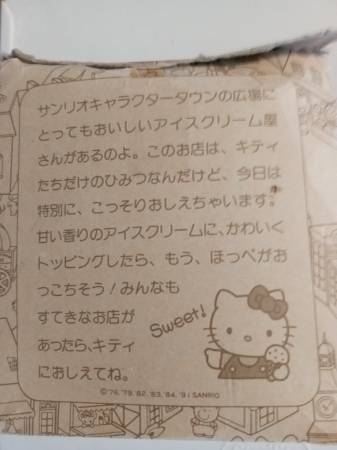 サンリオキャラクタータウンの広場に
とってもおいしいアイスクリーム屋
さんがあるのよ。このお店は、キティ
たちだけのひみつなんだけど、今日は
特別に、こっそりおしえちゃいます。
甘い香りのアイスクリームに、かわいく
トッピングしたら、もう、ほっぺがお
っこちそう！みんなも
すてきなお店が
あったら、キティ
におしえてね。
Sweet!
©'76,'79,'82,'83,'84,'91 SANRIO